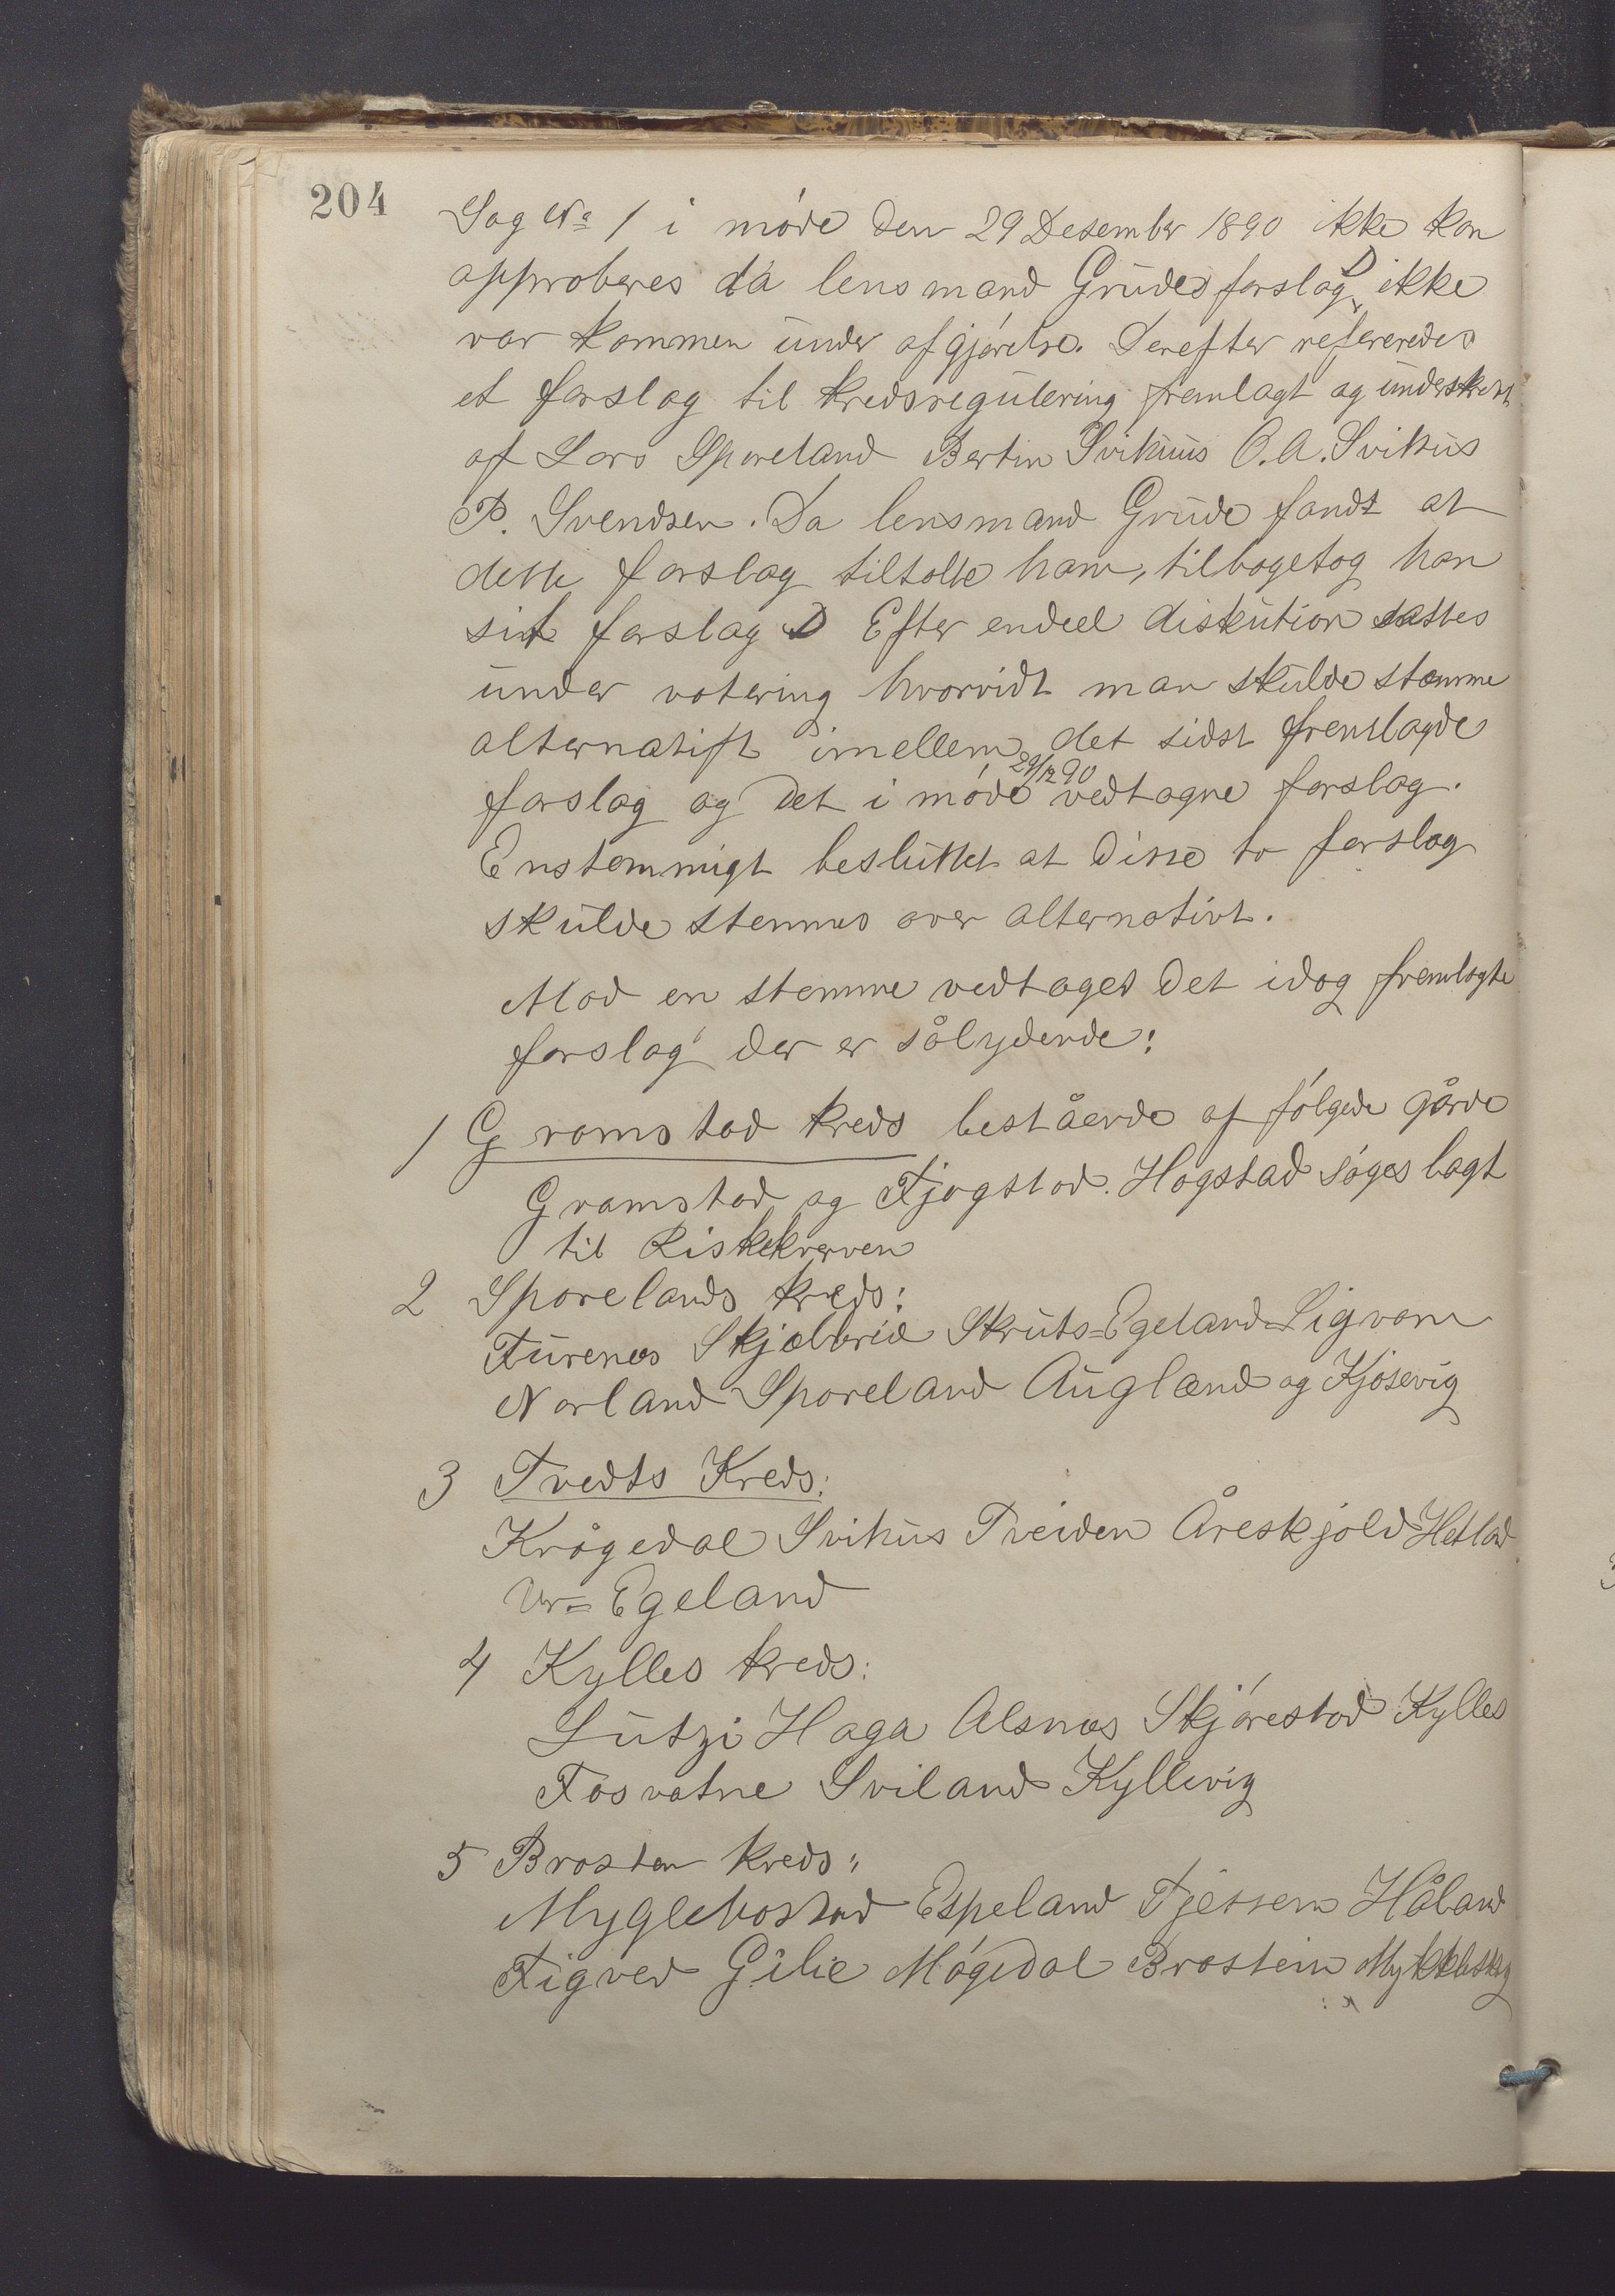 204
Sag No 1 i møde den 29 Desember 1890 ikke kan
approberes da lensmand Grudes forslag D ikke
var kommen under afgjørelse. Derefter refereredes
et forslag til kredsregulering fremlagt og underskrevet
af Lars Sporeland Bertin Svihus O. A. Svihus
P. Svendsen. Da lensmand Grude fandt at
dette forslag tiltalte ham, tilbagetog han
sit forslag D Efter endeel diskution sattes
under votering hvorvidt man skulde stemme
alternatift imellem det sidst fremlagde
forslag og det i møde 29/12 90 vedtagne forslag.
Enstemmigt besluttet at disse to forslag
skulde stemmes over alternativt.
Mod en stemme vedtaget det idag fremlagte
forslag der er sålydende:
1 Gramstad kreds bestående af følgede gårde
Gramstad og Fjogstad. Hogstad søges lagt
til Riskekverven
2 Sporelands kreds:
Furenes Skjelbrei Skruts=Egeland Ligvam
Norland Sporeland Augland og Kjosevig
3 Tvedts Kreds:
Krågedal Svihus Tveiden Åreskjold Hetland
Ur=Egeland
4 Kylles kreds:
Lutzi Haga Alsnes Skjørestad Kylles
Fosvatne Sviland Kyllevig
5 Brosten kreds:
Myglebostad Espeland Fjessem Håland
Figved Gilie Møgedal Brostein